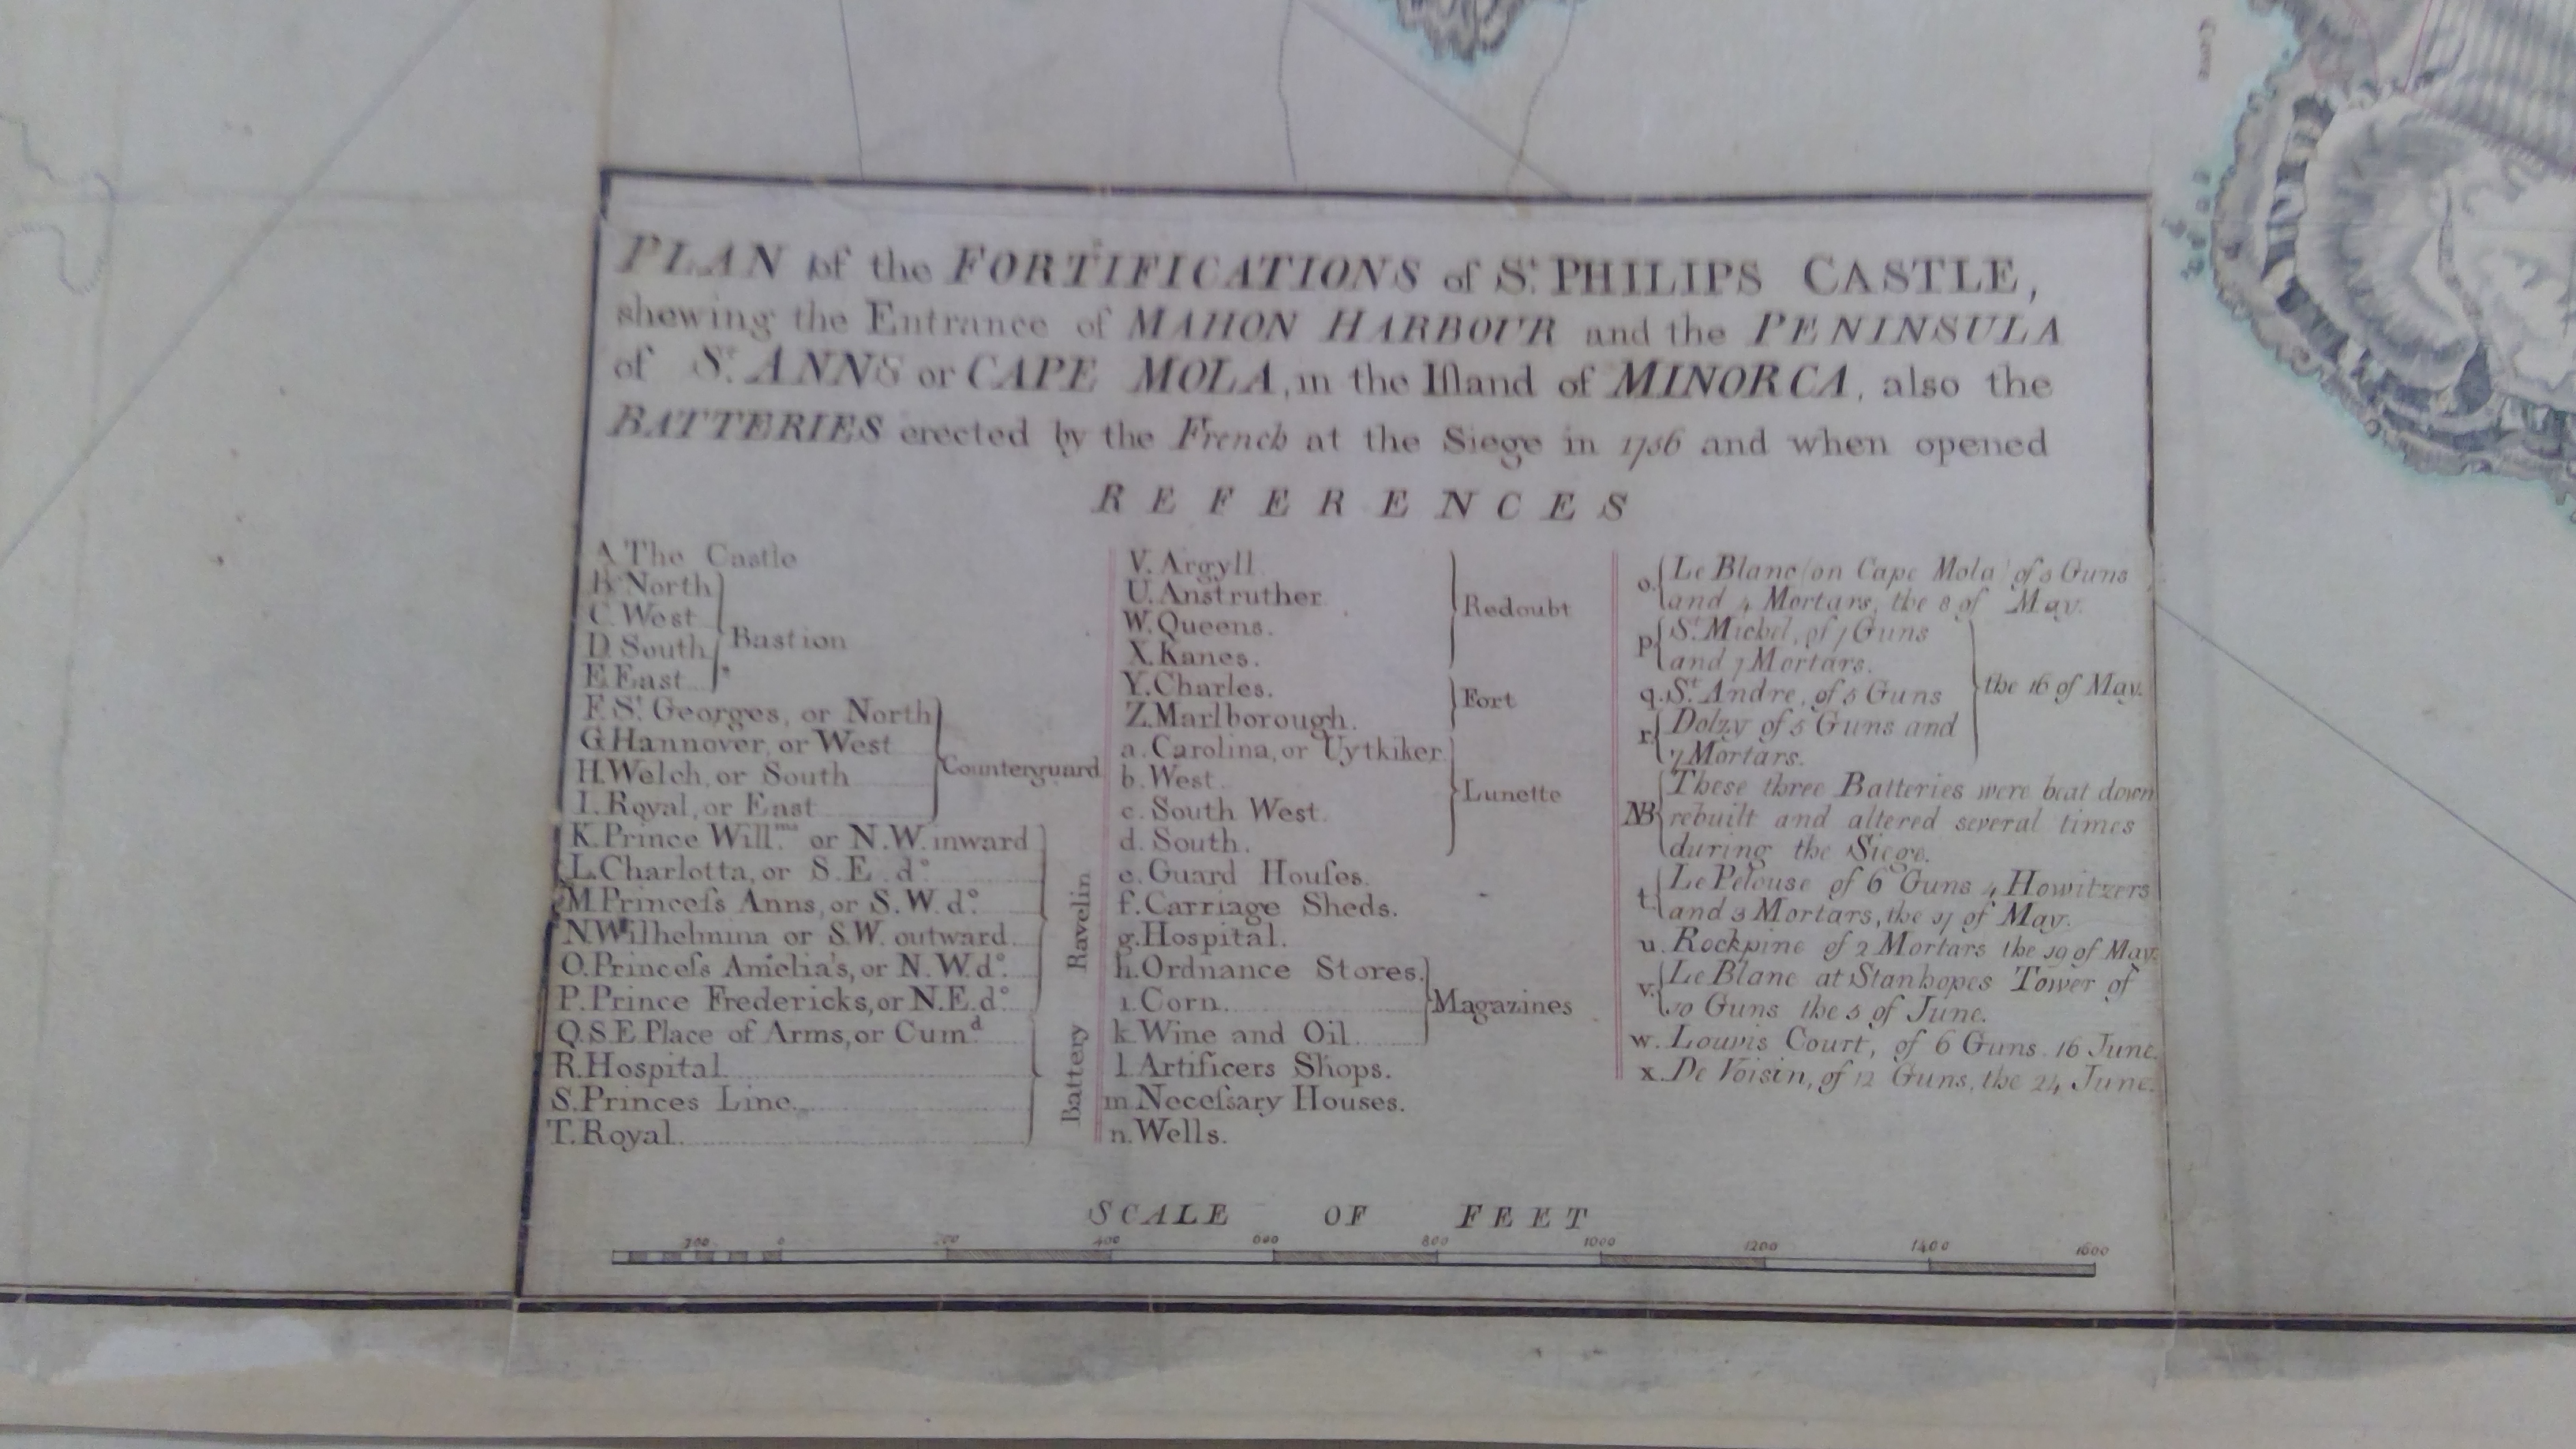 PLAN of the FORTIFICATIONS of St. PHILIPS CASTLE,
shewing the Entrance of MAHON HARBOUR and the PENINSULA
of St. ANNS or CAPE MOLA, in the Iſland of MINORCA, also the
BATTERIES erected by the French at the Siege in 1756 and when opened
REFERENCES
A. The Castle
B. North
C. West
D. South
E. East
Bastion
F. St. Georges, or North
G. Hannover, or West
H. Welch, or South
I. Royal, or East
Counterguard
K. Prince Will.ms or N.W. inward
L. Charlotta, or S.E. do.
M. Princeſs Anns, or S.W. do.
N. Wilhelmina or S.W. outward
O. Princeſs Amelia's, or N.W. do.
P. Prince Fredericks, or N.E. do.
Ravelin
Q. S.E Place of Arms, or Cumd.
R. Hospital
S. Princes Line
T. Royal
Battery
V. Argyll
U. Anstruther
W. Queens.
X. Kanes.
Redoubt
Y. Charles.
Z. Marlborough.
Fort
a. Carolina, or Uytkiker
b. West
c. South West
d. South.
Lunette
e. Guard Houſes.
f. Carriage Sheds.
g. Hospital.
h. Ordnance Stores.
i. Corn
k. Wine and Oil
Magazines
l. Artificers Shops.
m. Neceſsary Houses.
n. Wells.
o. Le Blanc (on Cape Mola) of 5 Guns
and 4 Mortars, the 8 of May.
p. St. Michel, of 7 Guns
and 7 Mortars.
q. St. Andre, of 5 Guns
r. Dolzy of 5 Guns and
7 Mortars.
the 16 of May.
NB These three Batteries were beat down
rebuilt and altered several times
during the Siege.
t. Le Pelouse of 6 Guns 4 Howitzers
and 3 Mortars, the of May.
u. Rockpine of 2 Mortars the of May
v. Le Blanc at Stanhopes Tower of
10 Guns the 5 of June.
w. Louvis Court, of 6 Guns. 16 June.
x. De Voisin, of 12 Guns, the 24 June.
SCALE OF FEET
200 0 200 400 600 800 1000 1200 1400 1600